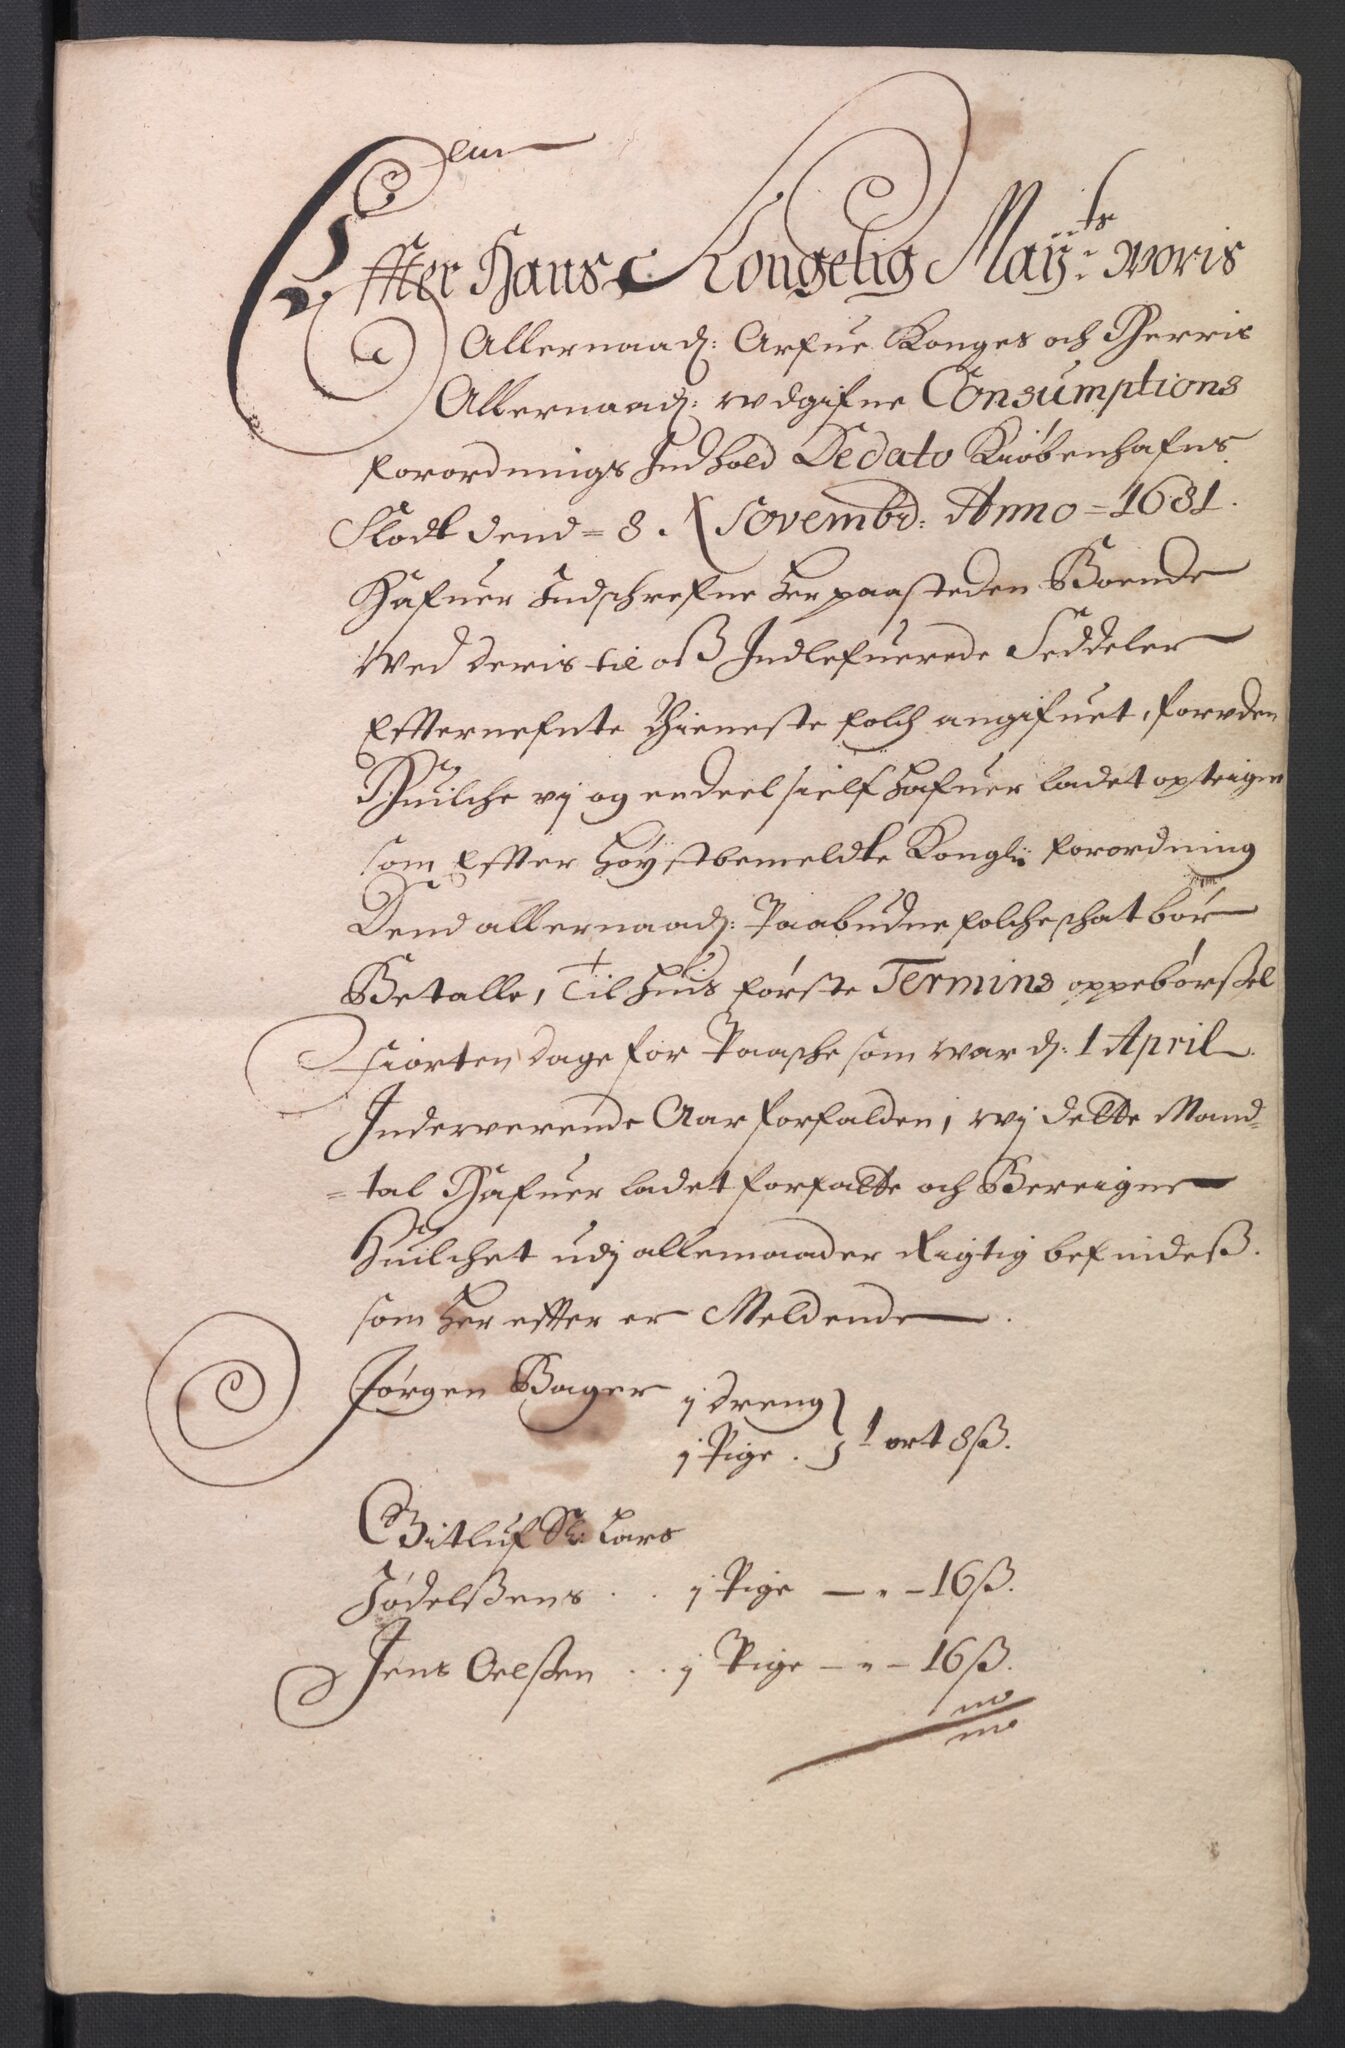 Effter Hans Kongelig Mayᵗˢ: Woris
Allernaad: Arfue Konges och Herris
Allernaad: wdgifne Consumptions
forordnings Indhold Dedato Kiøbenhafns
Slodt dend = 8. Novembr: Anno = 1681.
Hafuer Indschrefne her paa steden Boende
Wed deris til oß Indlefuerede Seddeler
Effternefnte thieneste folch angifuet, forvden
Huilche vj og endeel sielf hafuer ladet opteigne
som Effter Høystbemeldte Kongl: forordning
Dend allernaad: Paabudne folcheschat bør
Betalle, Til huis første Termins oppebørßel
fiorten dage for Paasche som war d: 1 April
Inderverende Aar forfalden, wj dette Mand-
=tal Hafuer ladet forfatte och Bereigne
Huilchet udj allemaader Rigtig befindeß.
som her effter er Meldende.
Jørgen Bager j dreng
j Pige. 1 ort 8ß.
Gitluf Sl: Lars
Jødelßens .. j Pige — " — 16ß.
Jens Oelßen .. j Pige — " — 16ß.